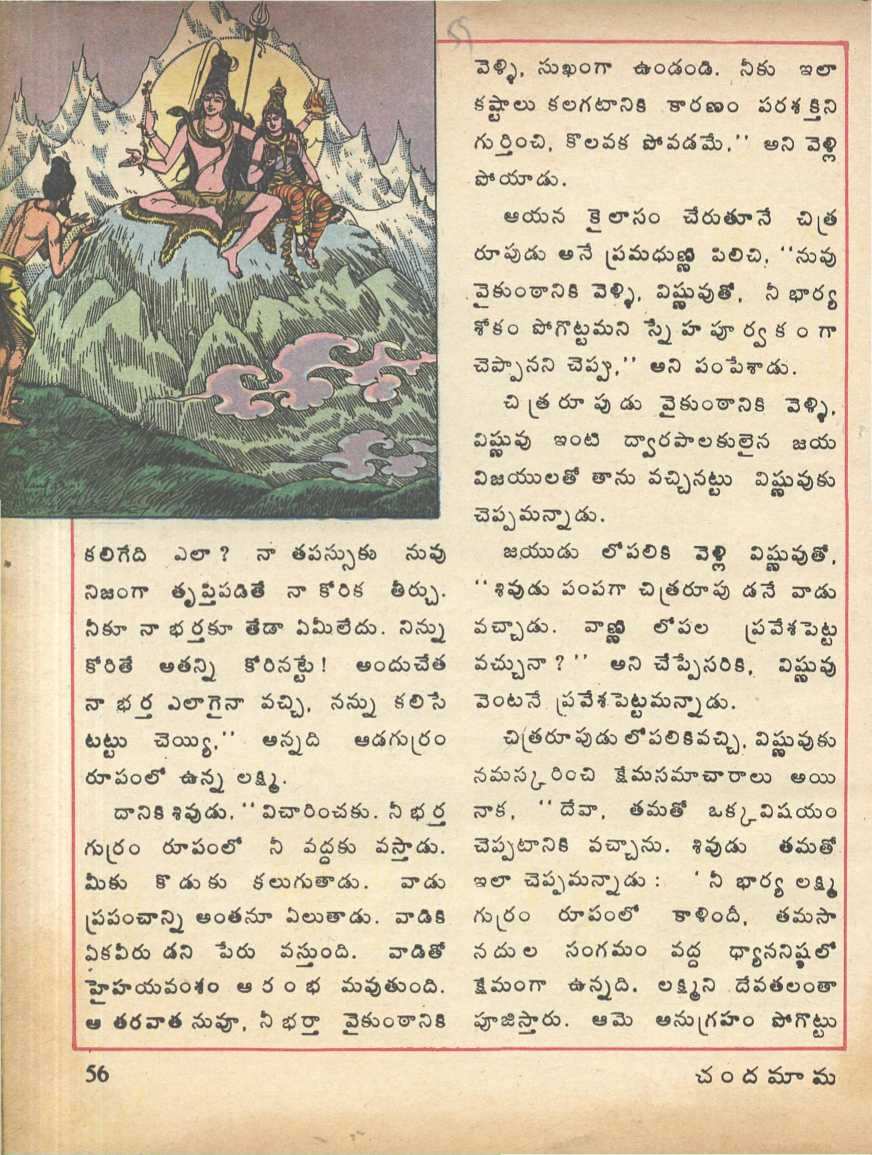 కలిగేది ఎలా? నా తపస్సుకు నువు
నిజంగా తృప్తిపడితే నా కోరిక తీర్చు.
నీకూ నా భర్తకూ తేడా ఏమీలేదు. నిన్ను
కోరితే అతన్ని కోరినట్టే! అందుచేత
నా భర్త ఎలాగైనా వచ్చి, నన్ను కలిసే
టట్టు చెయ్యి,'' అన్నది ఆడగుర్రం
రూపంలో ఉన్న లక్ష్మి.
దానికి శివుడు, ''విచారించకు. నీ భర్త
గుర్రం రూపంలో నీ వద్దకు వస్తాడు.
మీకు కొడుకు కలుగుతాడు. వాడు
ప్రపంచాన్ని అంతనూ ఏలుతాడు. వాడికి
ఏకవీరు డని పేరు వస్తుంది. వాడితో
హైహయవంశం ఆరంభ మవుతుంది.
ఆ తరవాత నువూ, నీ భర్తా వైకుంఠానికి
వెళ్ళి, సుఖంగా ఉండండి. నీకు ఇలా
కష్టాలు కలగటానికి కారణం పరశక్తిని
గుర్తించి, కొలవక పోవడమే,'' అని వెళ్లి
పోయాడు.
ఆయన కైలాసం చేరుతూనే చిత్ర
రూపుడు అనే ప్రమథుణ్ణి పిలిచి, ''నువు
వైకుంఠానికి వెళ్ళి, విష్ణువుతో, నీ భార్య
శోకం పోగొట్టమని స్నేహపూర్వకంగా
చెప్పానని చెప్పు,'' అని పంపేశాడు.
చిత్రరూపుడు వైకుంఠానికి వెళ్ళి,
విష్ణువు ఇంటి ద్వారపాలకులైన జయ
విజయులతో తాను వచ్చినట్టు విష్ణువుకు
చెప్పమన్నాడు.
జయుడు లోపలికి వెళ్లి విష్ణువుతో,
''శివుడు పంపగా చిత్రరూపు డనే వాడు
వచ్చాడు. వాణ్ణి లోపల ప్రవేశపెట్ట
వచ్చునా?'' అని చేప్పేసరికి, విష్ణువు
వెంటనే ప్రవేశపెట్టమన్నాడు.
చిత్రరూపుడు లోపలికివచ్చి, విష్ణువుకు
నమస్కరించి క్షేమసమాచారాలు అయి
నాక, ''దేవా, తమతో ఒక్క విషయం
చెప్పటానికి వచ్చాను. శివుడు తమతో
ఇలా చెప్పమన్నాడు : 'నీ భార్య లక్ష్మి
గుర్రం రూపంలో కాళిందీ, తమసా
నదుల సంగమం వద్ద ధ్యాననిష్ఠలో
క్షేమంగా ఉన్నది. లక్ష్మిని దేవతలంతా
పూజిస్తారు. ఆమె అనుగ్రహం పోగొట్టు
56
చందమామ